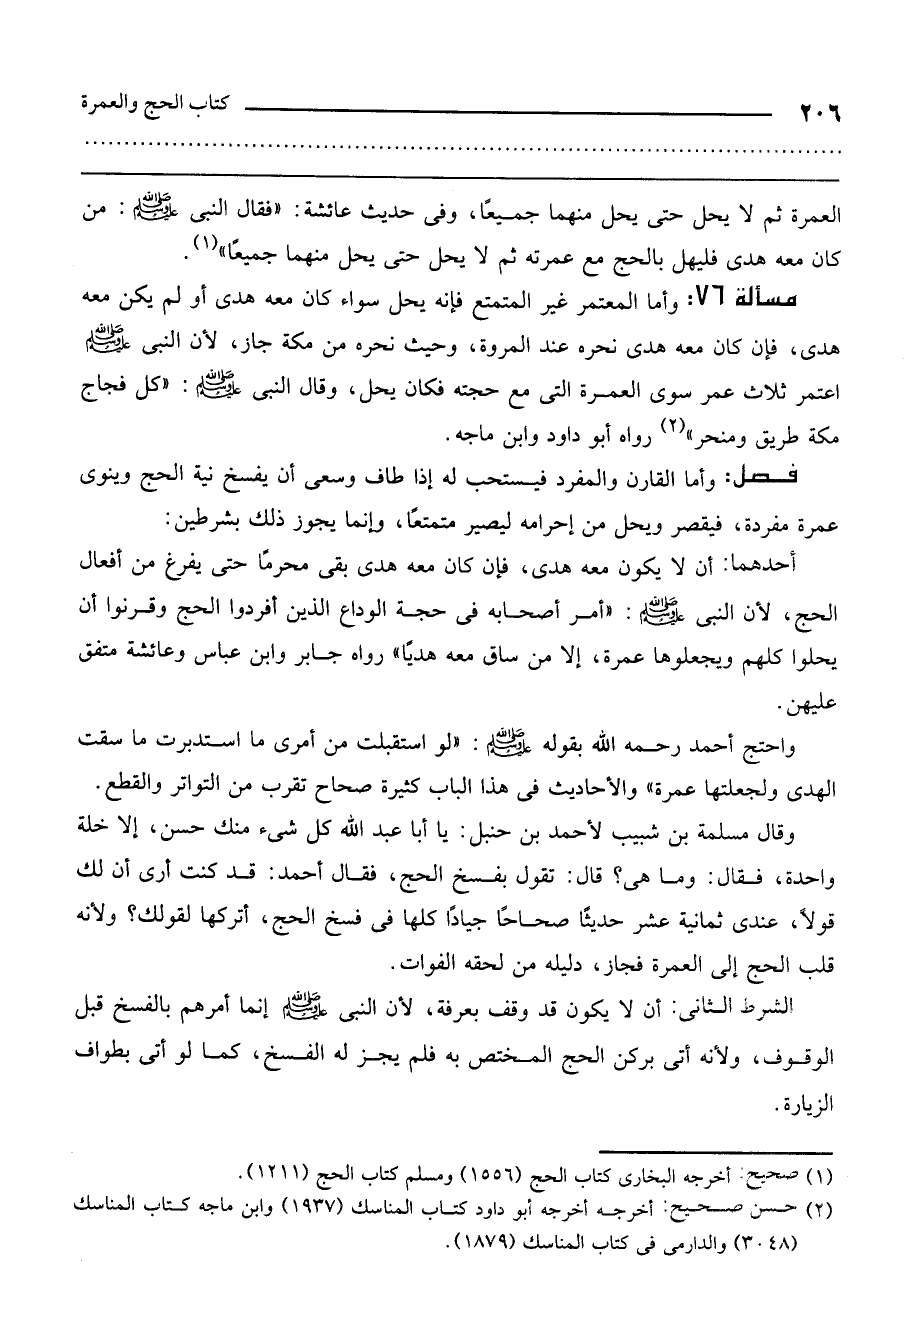 ٢٠٦ كتاب الحج والعمرة
العمرة ثم لا يحل حتى يحل منهما جميعًا، وفى حديث عائشة: «فقال النبى ﷺ : من
كان معه هدى فليهل بالحج مع عمرته ثم لا يحل حتى يحل منهما جميعًا»(١).
مسألة ٧٦: وأما المعتمر غير المتمتع فإنه يحل سواء كان معه هدى أو لم يكن معه
هدى، فإن كان معه هدى نحره عند المروة، وحيث نحره من مكة جاز، لأن النبى ﷺ
اعتمر ثلاث عمر سوى العمرة التى مع حجته فكان يحل، وقال النبى ﷺ : «كل فجاج
مكة طريق ومنحر»(٢) رواه أبو داود وابن ماجه.
فصل: وأما القارن والمفرد فيستحب له إذا طاف وسعى أن يفسخ نية الحج وينوى
عمرة مفردة، فيقصر ويحل من إحرامه ليصير متمتعًا، وإنما يجوز ذلك بشرطين:
أحدهما: أن لا يكون معه هدى، فإن كان معه هدى بقى محرمًا حتى يفرغ من أفعال
الحج، لأن النبى ﷺ : «أمر أصحابه فى حجة الوداع الذين أفردوا الحج وقرنوا أن
يحلوا كلهم ويجعلوها عمرة، إلا من ساق معه هديًا» رواه جابر وابن عباس وعائشة متفق
عليهن.
واحتج أحمد رحمه الله بقوله ﷺ : «لو استقبلت من أمرى ما استدبرت ما سقت
الهدى ولجعلتها عمرة» والأحاديث فى هذا الباب كثيرة صحاح تقرب من التواتر والقطع.
وقال مسلمة بن شبيب لأحمد بن حنبل: يا أبا عبد الله كل شىء منك حسن، إلا خلة
واحدة، فقال: وما هى؟ قال: تقول بفسخ الحج، فقال أحمد: قد كنت أرى أن لك
قولاً، عندى ثمانية عشر حديثًا صحاحًا جيادًا كلها فى فسخ الحج، أتركها لقولك؟ ولأنه
قلب الحج إلى العمرة فجاز، دليله من لحقه الفوات.
الشرط الثانى: أن لا يكون قد وقف بعرفة، لأن النبى ﷺ إنما أمرهم بالفسخ قبل
الوقوف، ولأنه أتى بركن الحج المختص به فلم يجز له الفسخ، كما لو أتى بطواف
الزيارة.
(١) صحيح: أخرجه البخارى كتاب الحج (١٥٥٦) ومسلم كتاب الحج (١٢١١).
(٢) حسن صحيح: أخرجه أخرجه أبو داود كتاب المناسك (١٩٣٧) وابن ماجه كتاب المناسك
(٣٠٤٨) والدارمى فى كتاب المناسك (١٨٧٩).